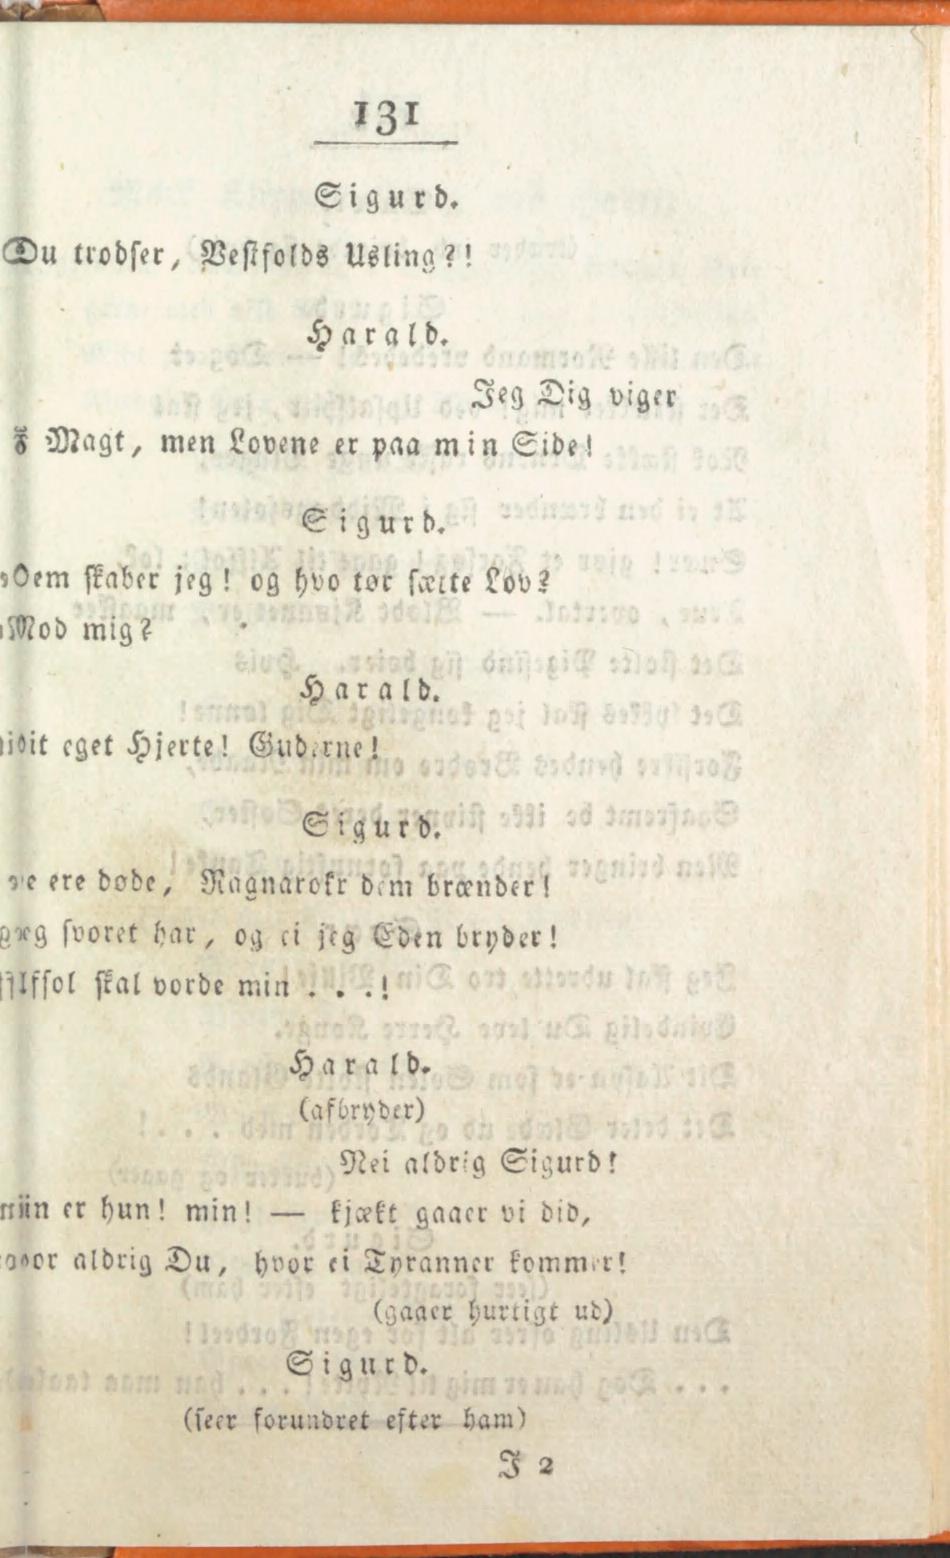 131
Sigurd.
Du trodser, Vestfolds Usling?!
Harald.
Jeg Dig viger
Magt, men Lovene er paa min Side!
Sigurd.
Dem skaber jeg! og hvo tør sætte Lov?
Mod mig?
Harald.
Dit eget Hjerte! Guderne!
Sigurd.
ere døde, Ragnarokr dem brænder!
svoret har, og ei jeg Eden bryder!
Alfsol skal vorde min . . .!
Harald.
(afbryder)
Nei aldrig Sigurd!
er hun! min! — kjækt gaaer vi did,
aldrig Du, hvor ei Tyranner kommer!
(gaaer hurtigt ud)
Sigurd.
(seer forundret efter ham)
I 2